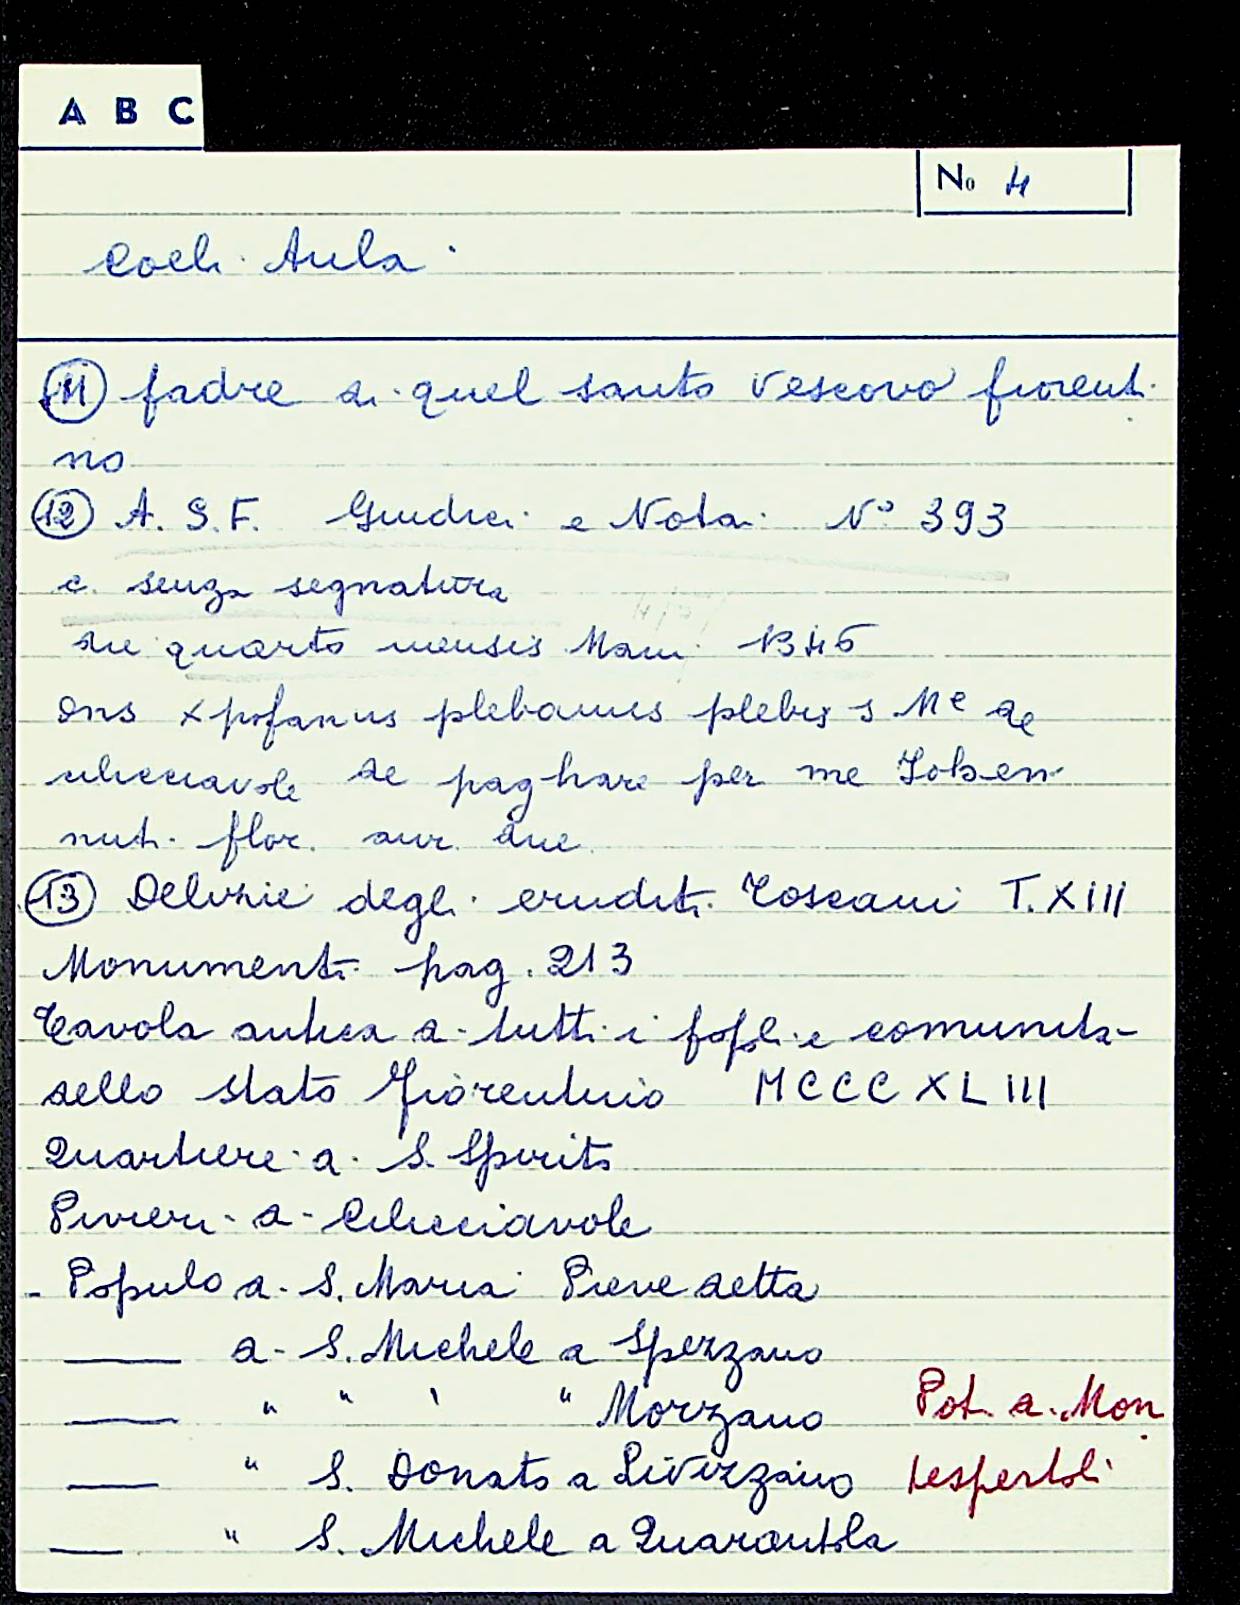 A B C
No 4
Coeli Aula
(11) padre di quel santo Vescovo fiorenti
no
(12) A. S. F. Giudici e Notai N° 393
c. senza segnatura
die quarto mensis Maii 1346
Dns xpofanus plebanus plebis s Me de
celicciavole de paghare per me
flor. aur. due
(13) Delizie degli eruditi Toscani T. XIII
Monumenti pag. 213
Tavola antica di tutti i popoli e comunità
dello stato fiorentino MCCCXLIII
Quartiere di S. Spirito
Pivieri di Celicciavole
- Populo di S. Maria Pieve detta
di S. Michele a Spezzano
" " " " Morzano Pot. di Mon
" S. Donato a Livizzano tespertoli
" S. Michele a Quarantola